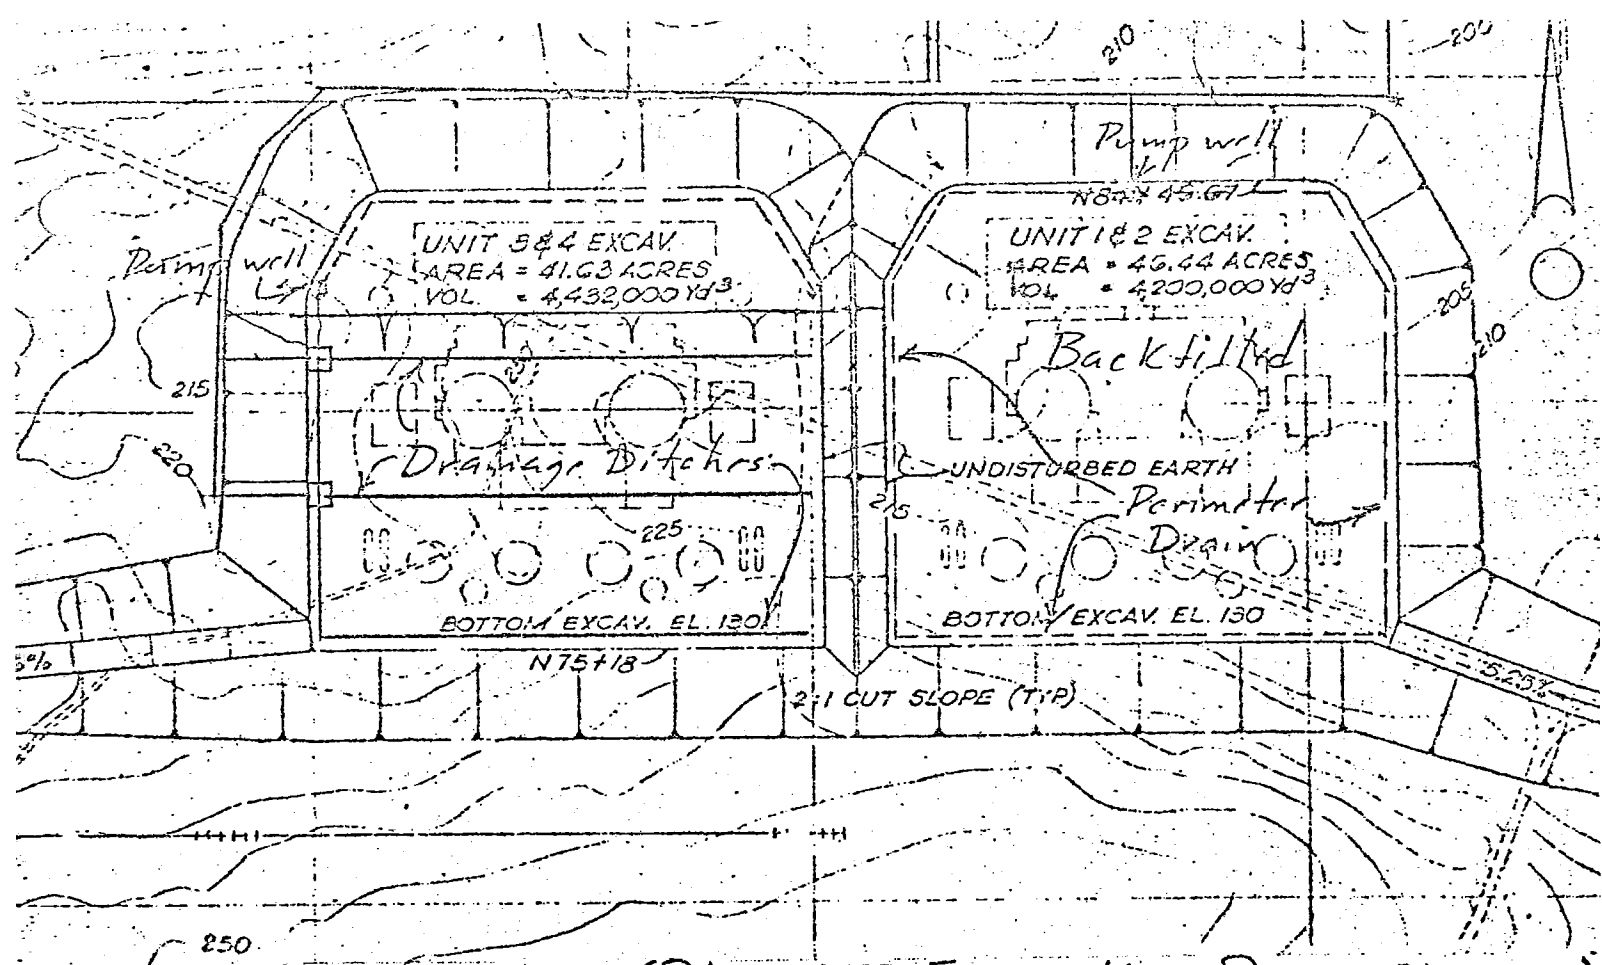 210
200
Pump well
N84+45.67
UNIT 3&4 EXCAV.
AREA = 41.63 ACRES
VOL. = 4,432,000 Yd³
UNIT 1&2 EXCAV.
AREA = 46.44 ACRES
VOL = 4200,000 Yd³
Pump well
205
210
Backfilled
230
215
220
Drainage Ditches
UNDISTURBED EARTH
215
Perimeter
Drain
225
BOTTOM EXCAV. EL. 130
BOTTOM EXCAV. EL. 130
N75+18
5%
5.25%
2:1 CUT SLOPE (TYP)
250